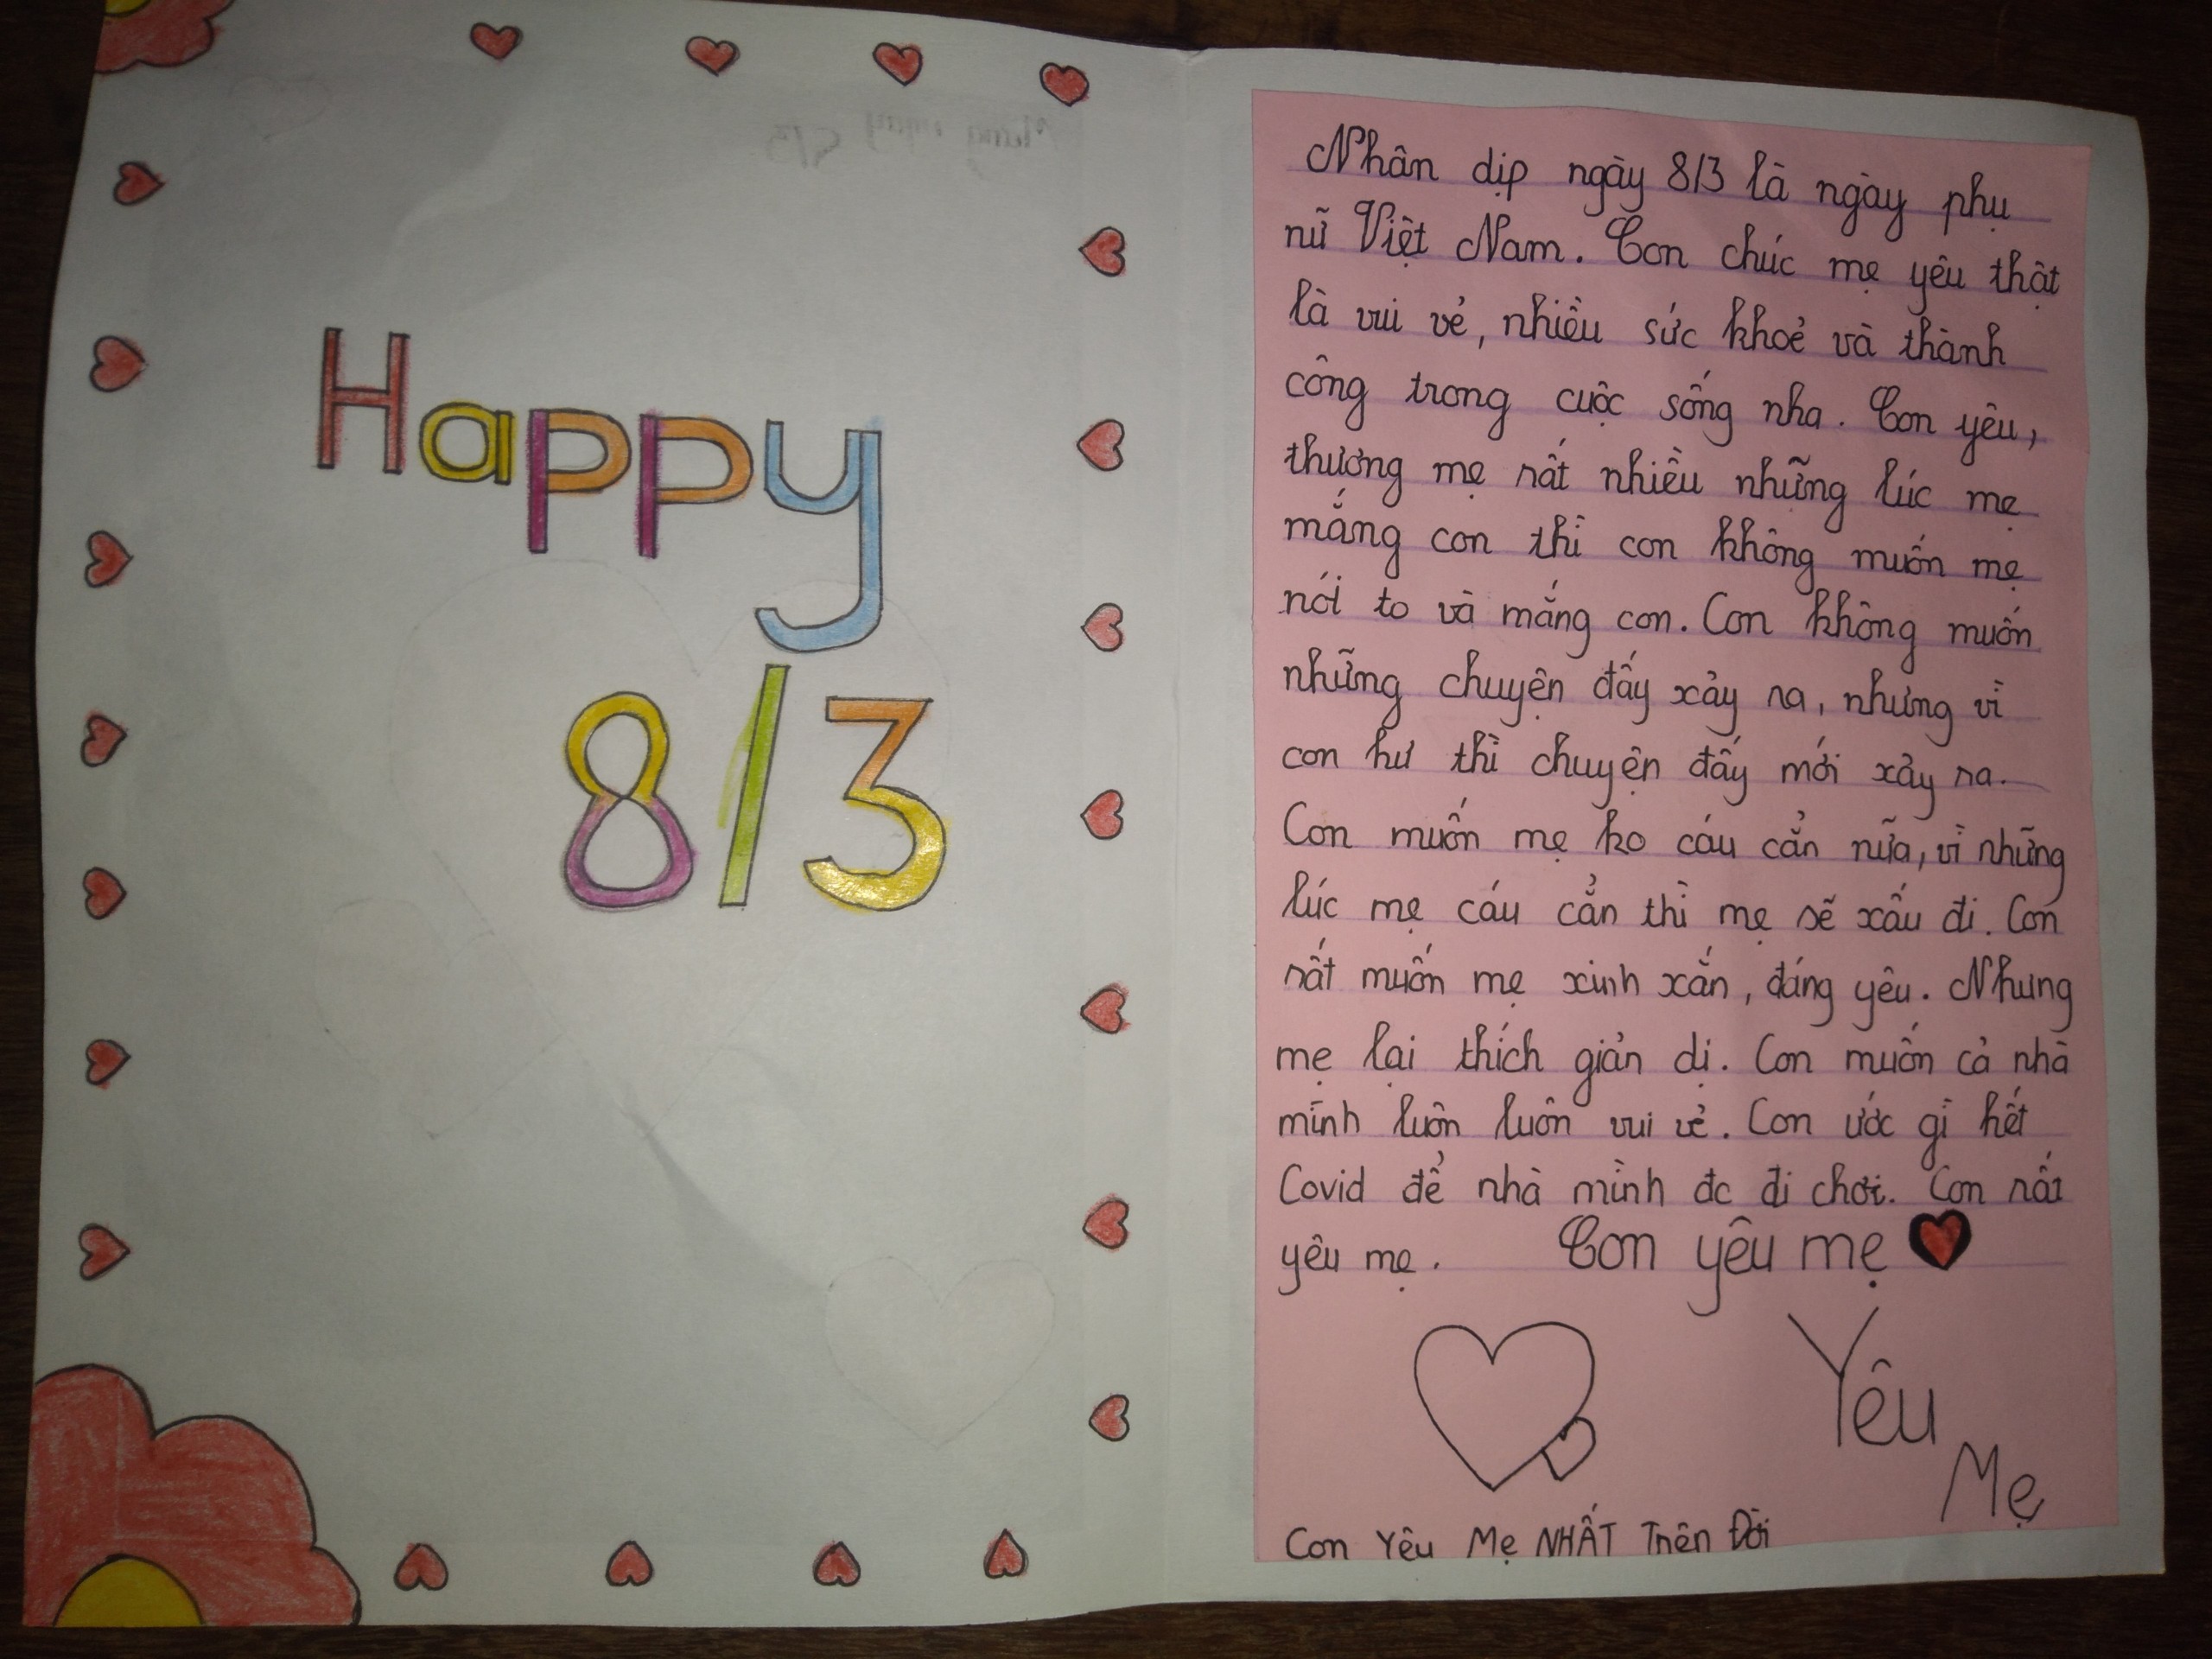 Happy
8/3
Nhân dịp ngày 8/3 là ngày phụ
nữ Việt Nam. Con chúc mẹ yêu thật
là vui vẻ, nhiều sức khoẻ và thành
công trong cuộc sống nha. Con yêu,
thương mẹ rất nhiều những lúc mẹ
mắng con thì con không muốn mẹ
nói to và mắng con. Con không muốn
những chuyện đấy xảy ra, nhưng vì
con hư thì chuyện đấy mới xảy ra.
Con muốn mẹ ko cáu cẳn nữa, vì những
lúc mẹ cáu cẳn thì mẹ sẽ xấu đi. Con
rất muốn mẹ xinh xắn, đáng yêu. Nhưng
mẹ lại thích giản dị. Con muốn cả nhà
mình luôn luôn vui vẻ. Con ước gì hết
Covid để nhà mình đc đi chơi. Con rất
yêu mẹ. Con yêu mẹ
Yêu
Mẹ
Con Yêu Mẹ NHẤT Trên Đời